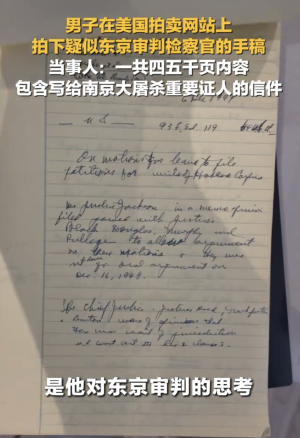 男子在美国拍卖网站上
拍下疑似东京审判检察官的手稿
当事人：一共四五千页内容
包含写给南京大屠杀重要证人的信件
U S
93 L.Ed. 119
On motions for leave to file
petitions for writs of Habeas Corpus
Mr. Justice Jackson in a memo opinion
filed joined with Justices
Black Douglas, Murphy and
Rutledge to allow argument
on these motions
set for oral argument on
Dec. 16, 1948.
The Chief Justice
Burton were of opinion that
there was want of jurisdiction
是他对东京审判的思考